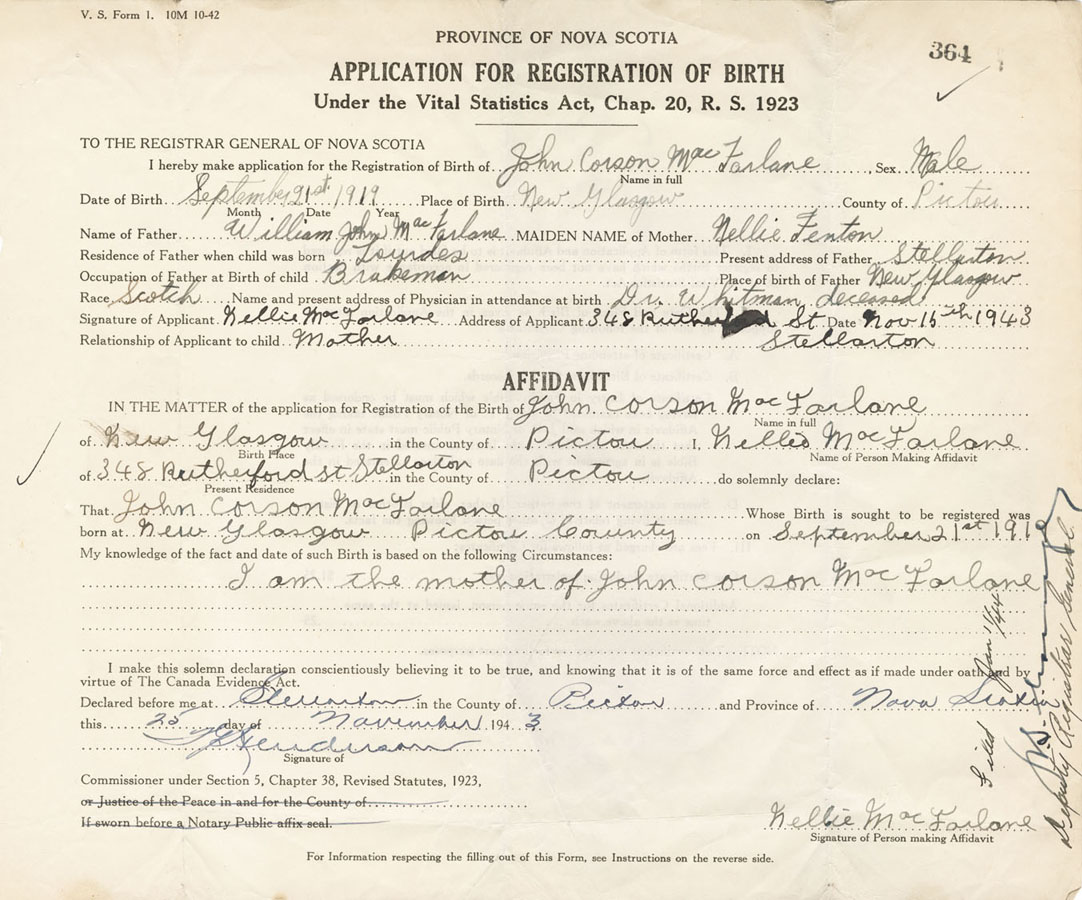 V. S. Form 1. 10M 10-42
PROVINCE OF NOVA SCOTIA
364
APPLICATION FOR REGISTRATION OF BIRTH
Under the Vital Statistics Act, Chap. 20, R. S. 1923
TO THE REGISTRAR GENERAL OF NOVA SCOTIA
I hereby make application for the Registration of Birth of John Corson MacFarlane, Sex Male
Name in full
Date of Birth September 21st 1919 Place of Birth New Glasgow County of Pictou
Month Date Year
Name of Father William John MacFarlane MAIDEN NAME of Mother Nellie Fenton
Residence of Father when child was born Lourdes Present address of Father Stellarton
Occupation of Father at Birth of child Brakeman Place of birth of Father New Glasgow
Race Scotch Name and present address of Physician in attendance at birth Dr. Whitman deceased
Signature of Applicant Nellie MacFarlane Address of Applicant 348 Rutherford St Date Nov 15th 1943
Relationship of Applicant to child Mother Stellarton
AFFIDAVIT
IN THE MATTER of the application for Registration of the Birth of John Corson MacFarlane
Name in full
of New Glasgow in the County of Pictou I, Nellie MacFarlane
Birth Place Name of Person Making Affidavit
of 348 Rutherford st Stellarton in the County of Pictou do solemnly declare:
Present Residence
That John Corson MacFarlane Whose Birth is sought to be registered was
born at New Glasgow Pictou County on September 21st 1919
My knowledge of the fact and date of such Birth is based on the following Circumstances:
I am the mother of John Corson MacFarlane
I make this solemn declaration conscientiously believing it to be true, and knowing that it is of the same force and effect as if made under oath and by
virtue of The Canada Evidence Act.
Declared before me at Stellarton in the County of Pictou and Province of Nova Scotia
this 25 day of November 1943
Henderson
Signature of
Commissioner under Section 5, Chapter 38, Revised Statutes, 1923,
or Justice of the Peace in and for the County of
If sworn before a Notary Public affix seal.
Nellie MacFarlane
Signature of Person making Affidavit
For Information respecting the filling out of this Form, see Instructions on the reverse side.
Filed Jan 11/44
Deputy Registrar General